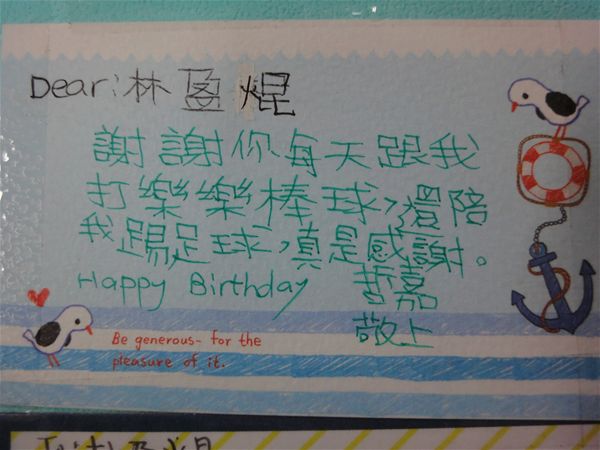 Dear:林盈焜
謝謝你每天跟我
打樂樂棒球,還陪
我踢足球,真是感謝。
Happy Birthday 哲嘉
敬上
Be generous- for the
pleasure of it.